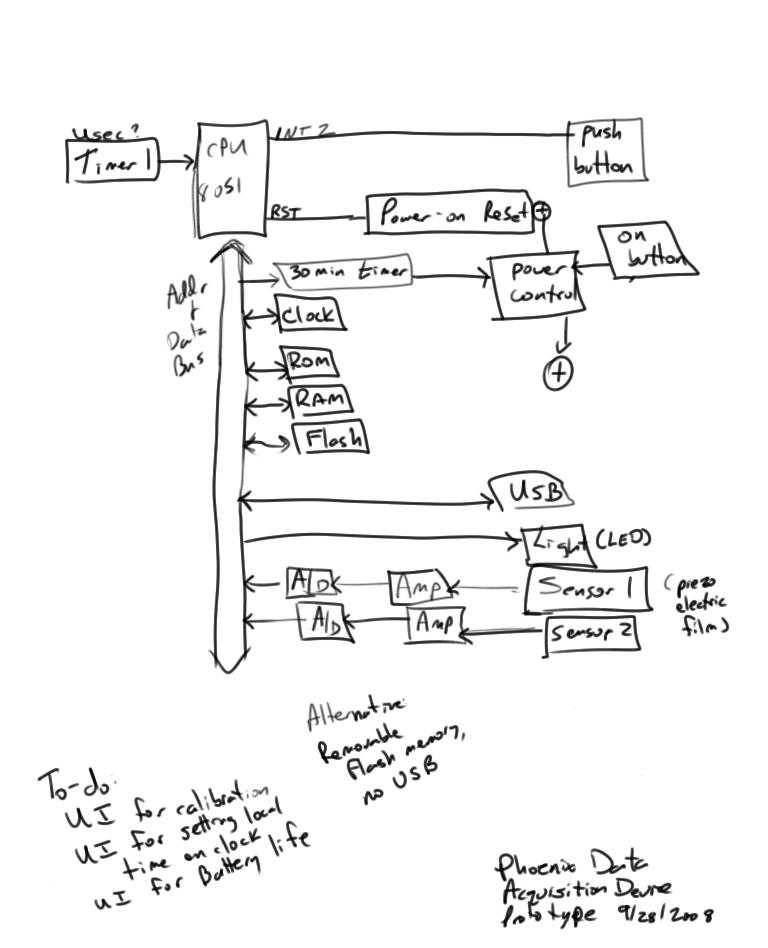 usec?
Timer 1
CPU
8051
INT 2
push
button
RST
Power-on Reset
+
on
button
30 min timer
power
control
+
Addr
+
Data
Bus
Clock
ROM
RAM
Flash
USB
Light (LED)
A/D
Amp
Sensor 1
(piezo
electric
film)
A/D
Amp
Sensor 2
Alternative:
Removable
Flash memory,
no USB
To-do:
UI for calibration
UI for setting local
time on clock
UI for Battery life
Phoenix Data
Acquisition Device
Prototype 9/28/2008